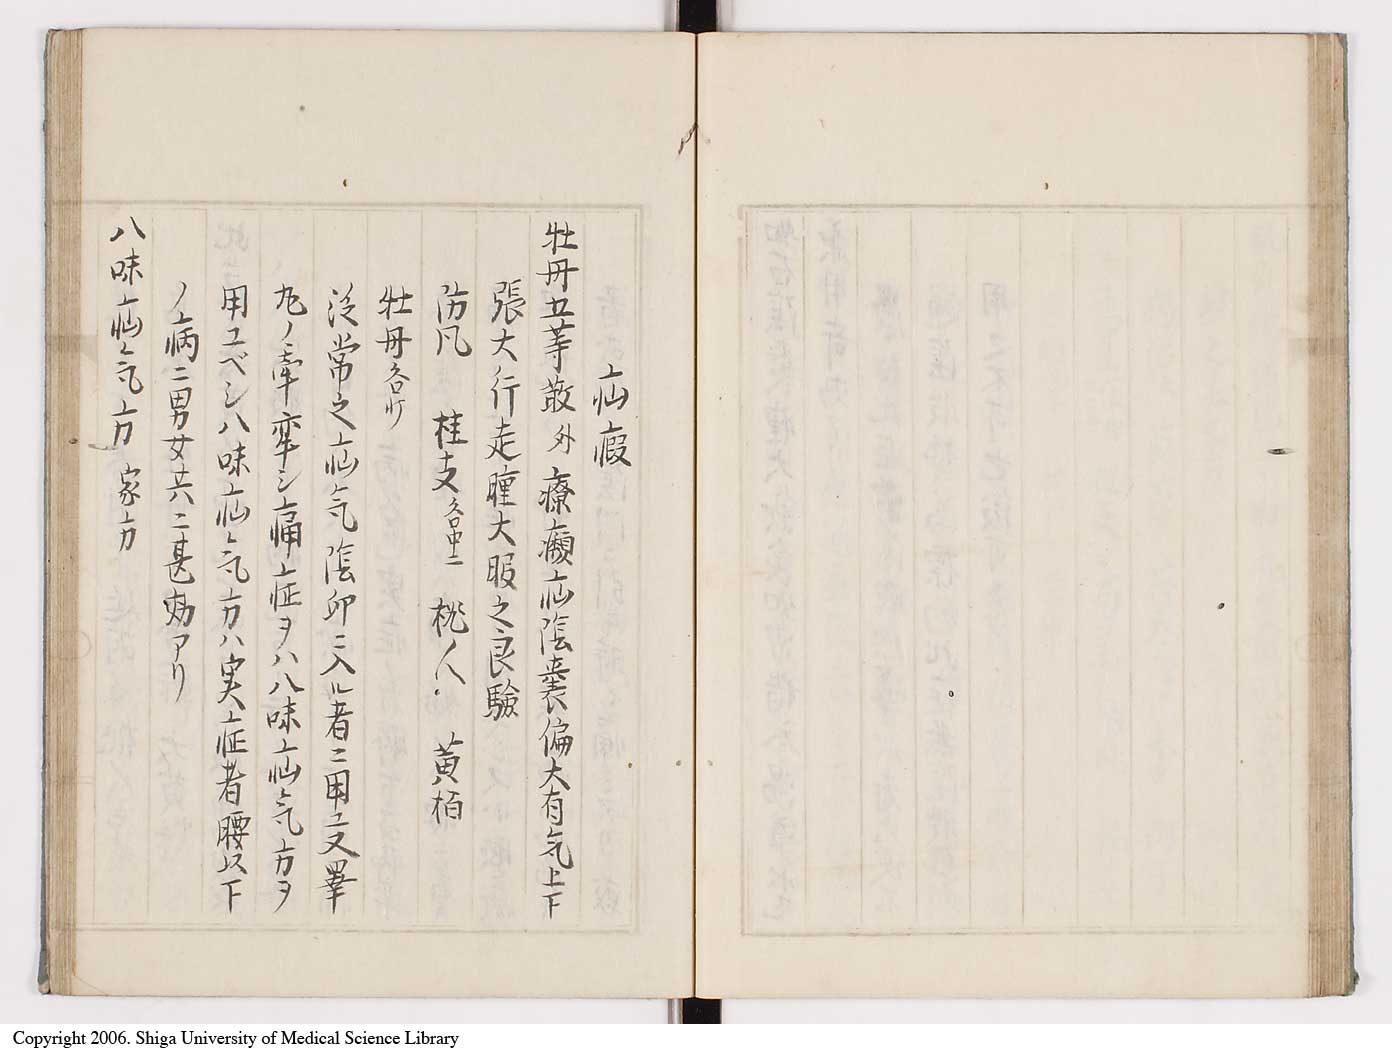 疝瘕
牡丹五等散 外 療癩疝陰嚢偏大有気上下
張大行走腫大服之良驗
防風 桂支 各中二 桃人 黄栢
牡丹 各
泛常之疝気陰卯ニ入ル者ニ用ユ又睾
丸ノ牽牽シ痛症ヲハ八味疝気方ヲ
用ユベシ八味疝気方ハ実症者腰以下
ノ病ニ男女共ニ甚効アリ
八味疝気方 家方
Copyright 2006. Shiga University of Medical Science Library